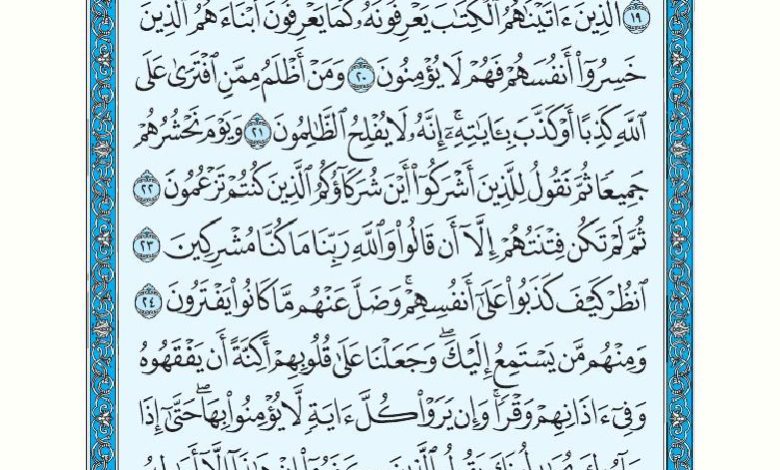 ١٩ ٱلَّذِينَ ءَاتَيْنَٰهُمُ ٱلْكِتَٰبَ يَعْرِفُونَهُۥ كَمَا يَعْرِفُونَ أَبْنَآءَهُمُ ٱلَّذِينَ
خَسِرُوٓا۟ أَنفُسَهُمْ فَهُمْ لَا يُؤْمِنُونَ ٢٠ وَمَنْ أَظْلَمُ مِمَّنِ ٱفْتَرَىٰ عَلَى
ٱللَّهِ كَذِبًا أَوْ كَذَّبَ بِـَٔايَٰتِهِۦٓ ۗ إِنَّهُۥ لَا يُفْلِحُ ٱلظَّٰلِمُونَ ٢١ وَيَوْمَ نَحْشُرُهُمْ
جَمِيعًا ثُمَّ نَقُولُ لِلَّذِينَ أَشْرَكُوٓا۟ أَيْنَ شُرَكَآؤُكُمُ ٱلَّذِينَ كُنتُمْ تَزْعُمُونَ ٢٢
ثُمَّ لَمْ تَكُن فِتْنَتُهُمْ إِلَّآ أَن قَالُوا۟ وَٱللَّهِ رَبِّنَا مَا كُنَّا مُشْرِكِينَ ٢٣
ٱنظُرْ كَيْفَ كَذَبُوا۟ عَلَىٰٓ أَنفُسِهِمْ ۚ وَضَلَّ عَنْهُم مَّا كَانُوا۟ يَفْتَرُونَ ٢٤
وَمِنْهُم مَّن يَسْتَمِعُ إِلَيْكَ ۖ وَجَعَلْنَا عَلَىٰ قُلُوبِهِمْ أَكِنَّةً أَن يَفْقَهُوهُ
وَفِىٓ ءَاذَانِهِمْ وَقْرًا ۚ وَإِن يَرَوْا۟ كُلَّ ءَايَةٍ لَّا يُؤْمِنُوا۟ بِهَا ۖ حَتَّىٰٓ إِذَا